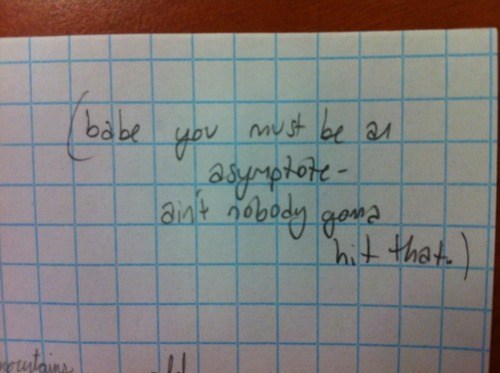 (babe you must be an
asymptote-
ain't nobody gonna
hit that.)
mountains